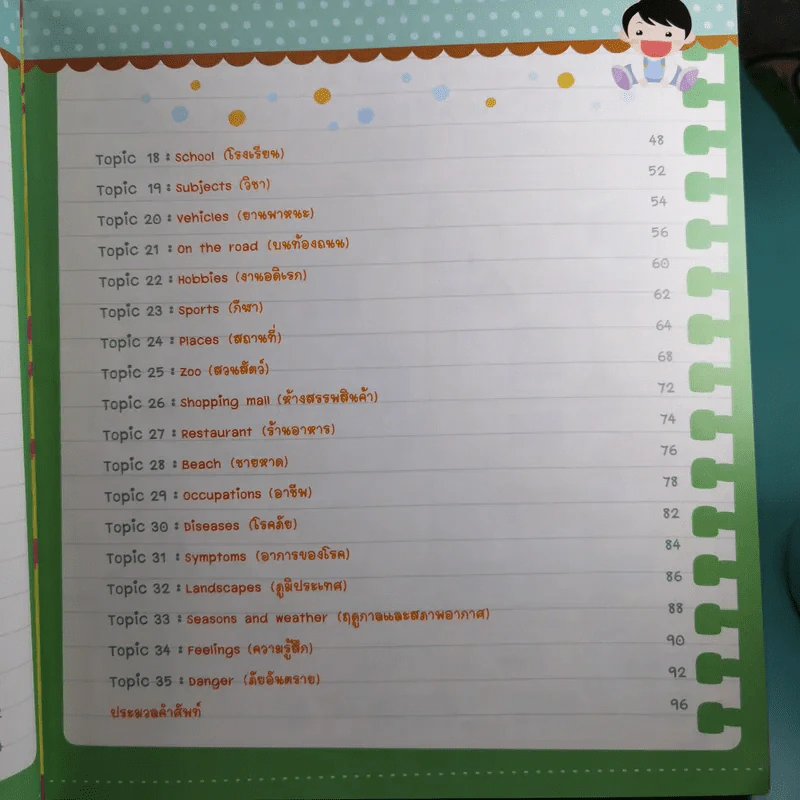 Topic 18 : School (โรงเรียน) 48
Topic 19 : Subjects (วิชา) 52
Topic 20 : Vehicles (ยานพาหนะ) 54
Topic 21 : On the road (บนท้องถนน) 56
Topic 22 : Hobbies (งานอดิเรก) 60
Topic 23 : Sports (กีฬา) 62
Topic 24 : Places (สถานที่) 64
Topic 25 : Zoo (สวนสัตว์) 68
Topic 26 : Shopping mall (ห้างสรรพสินค้า) 72
Topic 27 : Restaurant (ร้านอาหาร) 74
Topic 28 : Beach (ชายหาด) 76
Topic 29 : Occupations (อาชีพ) 78
Topic 30 : Diseases (โรคภัย) 82
Topic 31 : Symptoms (อาการของโรค) 84
Topic 32 : Landscapes (ภูมิประเทศ) 86
Topic 33 : Seasons and weather (ฤดูกาลและสภาพอากาศ) 88
Topic 34 : Feelings (ความรู้สึก) 90
Topic 35 : Danger (ภัยอันตราย) 92
ประมวลคำศัพท์ 96